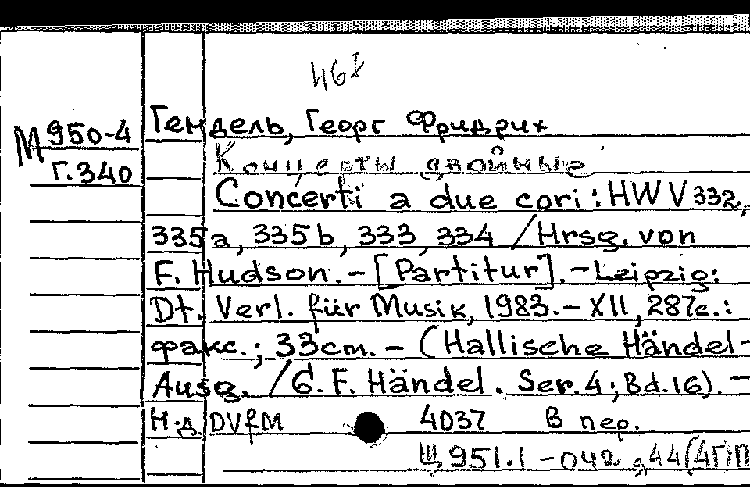 468
М 950-4
Г.340
Гендель, Георг Фридрих
Концерты двойные
Concerti a due cori : HWV 332,
335a, 335b, 333, 334 / Hrsg. von
F. Hudson. - [Partitur]. - Leipzig:
Dt. Verl. für Musik, 1983. - XII, 287с.:
факс.; 33cm. - (Hallische Händel-
Ausg. / G. F. Händel. Ser. 4; Bd. 16). -
Н.д. DVfM 4037 В пер.
Щ 951.1-042